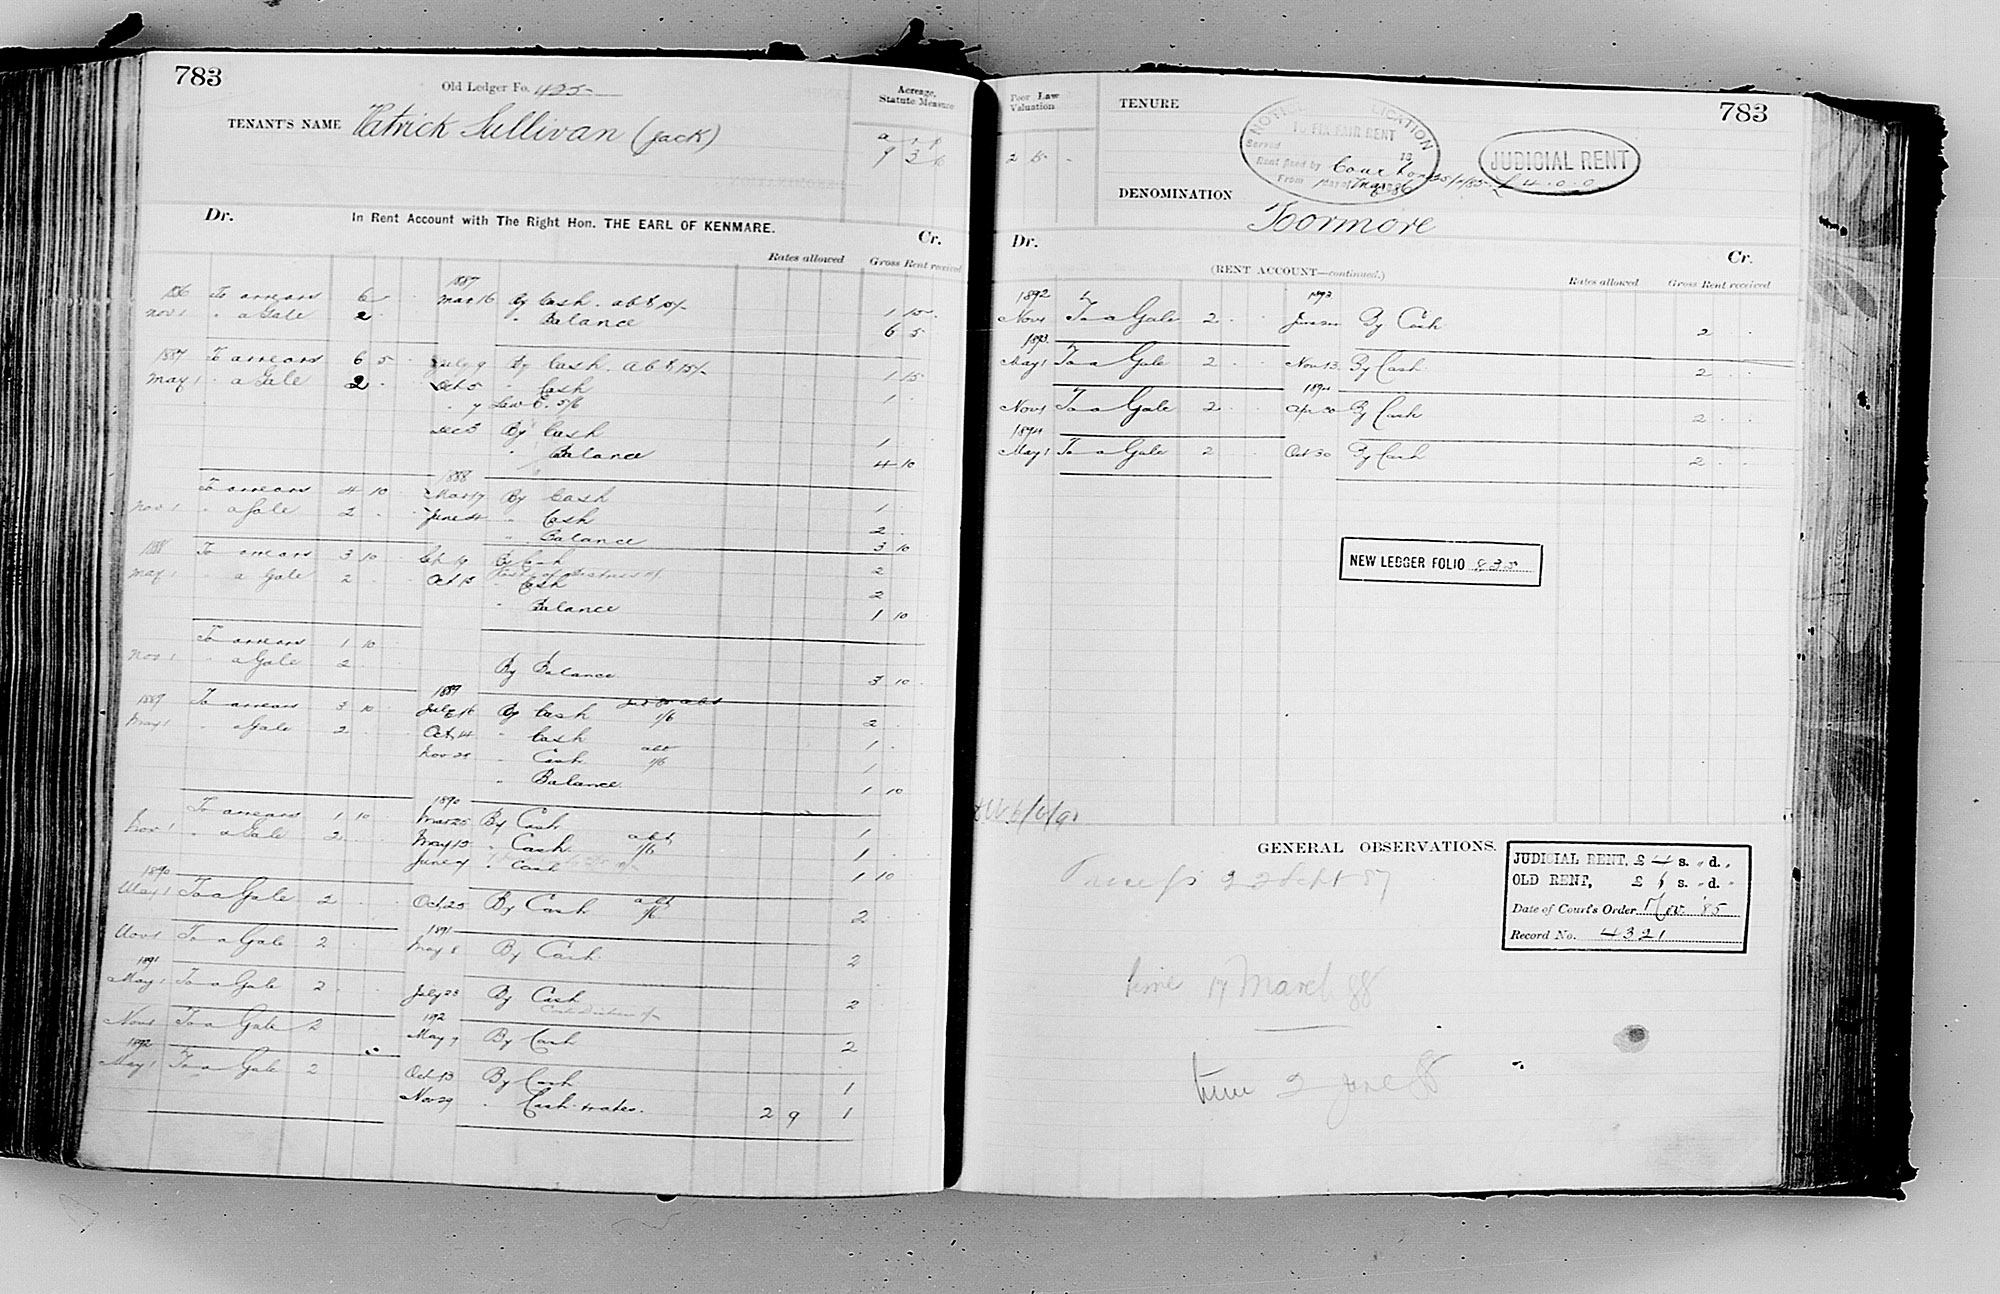 783
Old Ledger Fo. 425
TENANT'S NAME Patrick Sullivan (Jack)
Acreage,
Statute Measure
a r p
9 3 6
Dr. In Rent Account with The Right Hon. THE EARL OF KENMARE. Cr.
Rates allowed Gross Rent received
1887
1886 To arrears 6 Mar 16 By Cash . abt 15/- 1 15
Nov 1 " a Gale 2 " Balance 6 5
1887 To arrears 6 5 July 9 By Cash . abt 15/- 1 15
May 1 " a Gale 2 Oct 5 " Cash 1
" 7 Law C. 5/6
Dec 5 By Cash 1
" Balance 4 10
1888
To arrears 4 10 Mar 17 By Cash 1
Nov 1 " a Gale 2 June 4 " Cash 2
" Balance 3 10
1888 To arrears 3 10 Sep 19 By Cash 2
May 1 " a Gale 2 Oct 15 " Cash 2
" Balance 1 10
To arrears 1 10
Nov 1 " a Gale 2 By Balance 3 10
1889
1889 To arrears 3 10 July 16 By Cash 1/6 2
May 1 " a Gale 2 Oct 14 " Cash 1
Nov 29 " Cash abt 1/6 1
" Balance 1 10
1890
To arrears 1 10 Mar 25 By Cash 1
Nov 1 " a Gale 2 May 12 " Cash abt 1/6 1
June 4 " Cash 1 10
1890
May 1 To a Gale 2 Oct 25 By Cash abt 1/6 2
1891
Nov 1 To a Gale 2 May 8 By Cash 2
1891
May 1 To a Gale 2 July 28 By Cash 2
1892
Nov 1 To a Gale 2 May 7 By Cash 2
1892
May 1 To a Gale 2 Oct 13 By Cash 1
Nov 29 " Cash & rates. 2 9 1
Poor Law
Valuation
2 5 -
TENURE
783
NOTICE APPLICATION
TO FIX FAIR RENT
Served 18
Rent fixed by Court
From
JUDICIAL RENT
£4.0.0
DENOMINATION
Tormore
Dr. Cr.
(RENT ACCOUNT—continued.)
Rates allowed Gross Rent received
1892 1893
Nov 1 To a Gale 2 By Cash 2
1893
May 1 To a Gale 2 Nov 13 By Cash 2
1894
Nov 1 To a Gale 2 Apr 30 By Cash 2
1894
May 1 To a Gale 2 Oct 30 By Cash 2
NEW LEDGER FOLIO 835
GENERAL OBSERVATIONS.
22 Sept 87
time 17 March 88
time 2 June 88
JUDICIAL RENT, £ 4 s. " d. "
OLD RENT, £ 6 s. " d. "
Date of Court's Order Nov '85
Record No. 4321